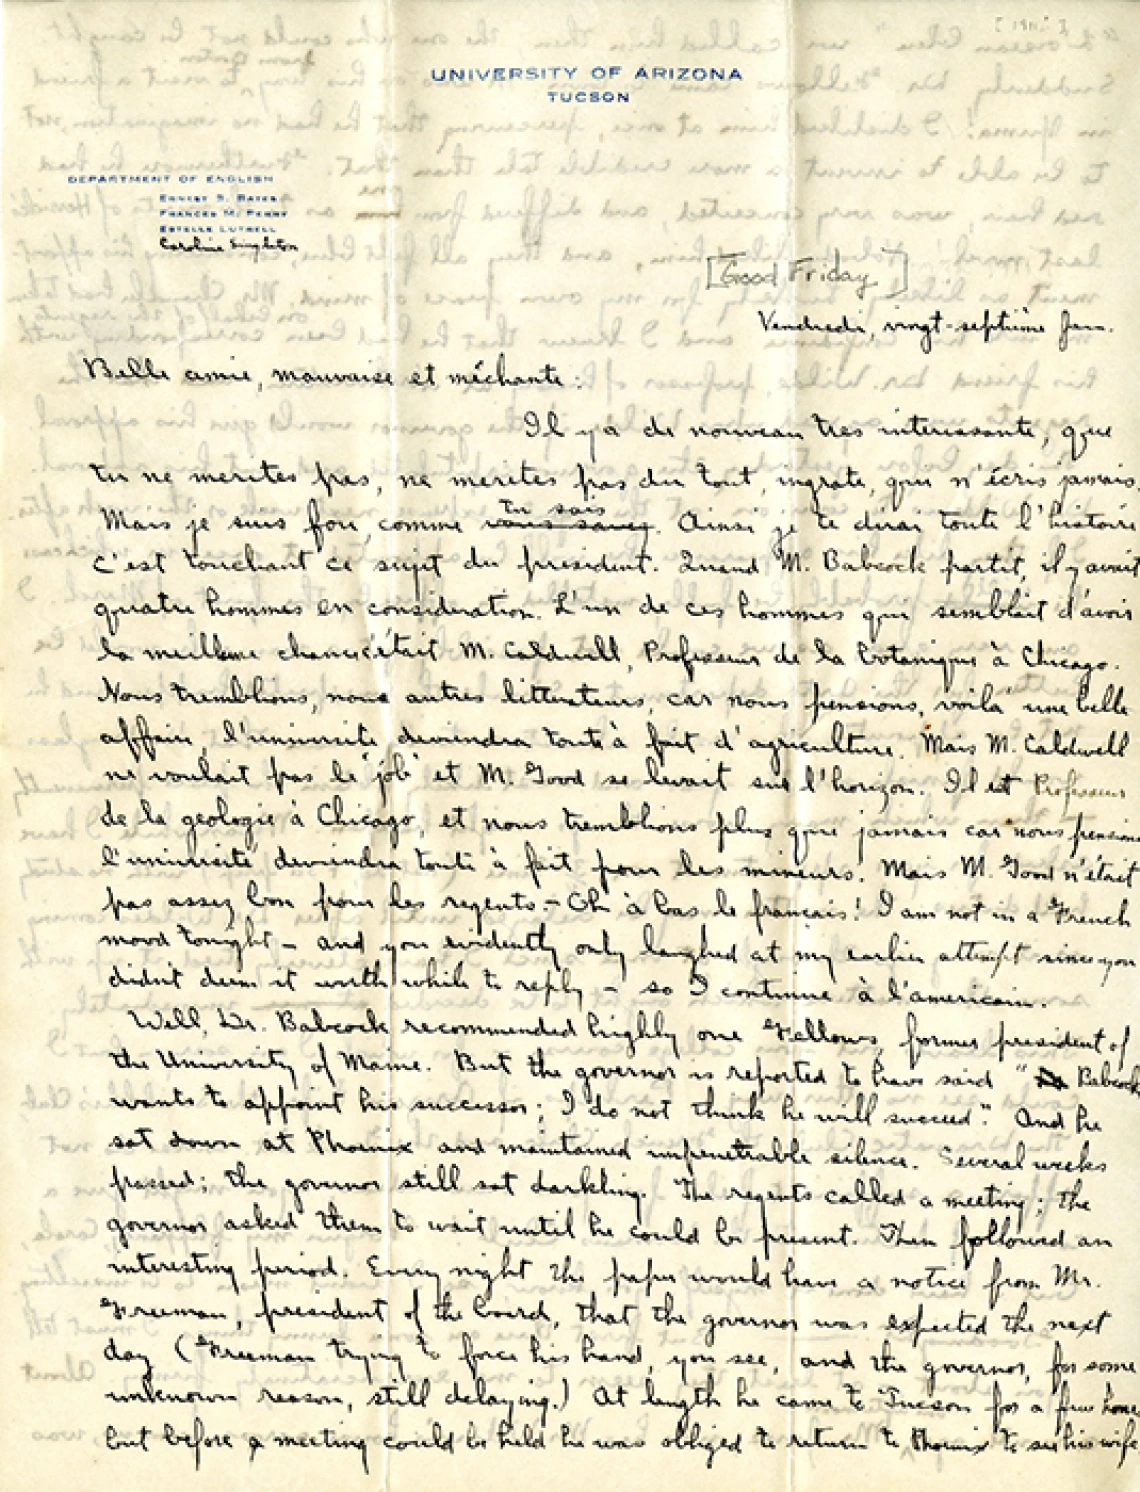 [1911?]
UNIVERSITY OF ARIZONA
TUCSON
DEPARTMENT OF ENGLISH
ERNEST S. BATES
FRANCES M. PERRY
ESTELLE LUTRELL
Caroline Singleton
[Good Friday]
Vendredi, vingt-septième Jan.
Belle amie, mauvaise et méchante:
Il y a de nouveau tres interessante, que
tu ne merites pas, ne merites pas du tout, ingrate, qui n'écris jamais.
Mais je suis fou, comme vous savez tu sais. Ainsi je te dirai toute l'histoire
c'est touchant ce sujet du president. Quand M. Babcock partit, il y avait
quatre hommes en consideration. L'un de ces hommes que semblait d'avoir
la meilleure chance c'était M. Caldwell, Professeur de la botanique à Chicago.
Nous tremblions, nous autres litterateurs, car nous pensions, voilà une belle
affaire, l'université deviendra toute à fait d'agriculture. Mais M. Caldwell
ne voulait pas le "job" et M. Good se levait sur l'horizon. Il est Professeur
de la geologie à Chicago, et nous tremblions plus que jamais car nous pensions
l'université deviendra toute à fait pour les mineurs. Mais M. Good n'était
pas assez bon pour les regents - Oh à bas le français! I am not in a French
mood tonight - and you evidently only laughed at my earlier attempt since you
didn't deem it worth while to reply - so I continue à l'americain.
Well, Dr. Babcock recommended highly one Fellows, former president of
the University of Maine. But the governor is reported to have said " Babcock
wants to appoint his successor; I do not think he will succeed". And he
sat down at Phoenix and maintained impenetrable silence. Several weeks
passed; the governor still sat darkling. The regents called a meeting; the
governor asked them to wait until he could be present. Then followed an
interesting period. Every night the paper would have a notice from Mr.
Freeman, president of the board, that the governor was expected the next
day (Freeman trying to force his hand, you see, and the governor, for some
unknown reason, still delaying.) At length he came to Tucson for a few hours
but before a meeting could be held he was obliged to return to Phoenix to see his wife